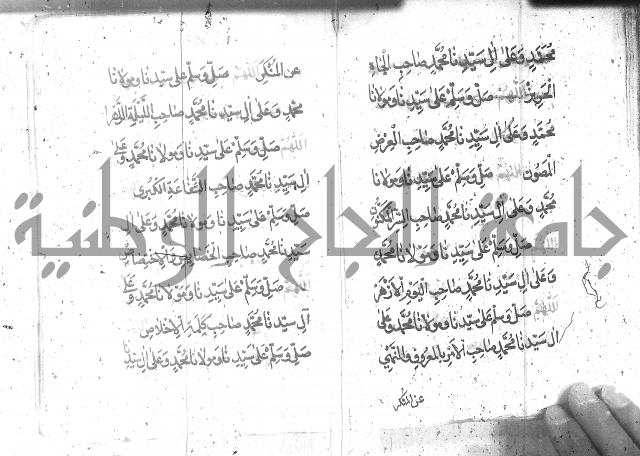 محمد وعلى ال سيدنا محمد صاحب الجاه
العزيز اللهم صل وسلم على سيدنا ومولانا
محمد وعلى ال سيدنا محمد صاحب العرض
المصون اللهم صل وسلم على سيدنا ومولانا
محمد وعلى ال سيدنا محمد صاحب السر المكنون
اللهم صل وسلم على سيدنا ومولانا محمد
وعلى ال سيدنا محمد صاحب اليوم الازهر
اللهم صل وسلم على سيدنا ومولانا محمد وعلى
ال سيدنا محمد صاحب الامر بالمعروف والنهي
عن المنكر
عن المنكر اللهم صل وسلم على سيدنا ومولانا
محمد وعلى ال سيدنا محمد صاحب الليلة
اللهم صل وسلم على سيدنا ومولانا محمد وعلى
ال سيدنا محمد صاحب الشفاعة الكبرى
صل وسلم على سيدنا ومولانا محمد وعلى ال
سيدنا محمد صاحب
اللهم صل وسلم على سيدنا ومولانا محمد وعلى
ال سيدنا محمد صاحب كلمة الاخلاص
صل وسلم على سيدنا ومولانا محمد وعلى ال سيدنا
جامعة النجاح الوطنية